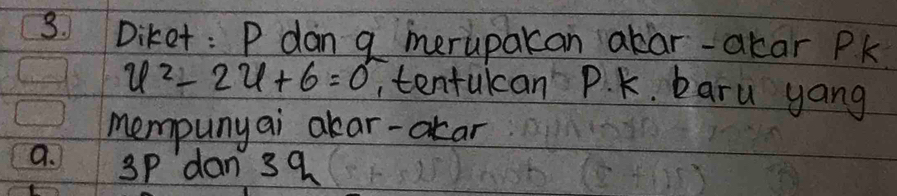 3. Diket : P dan q merupakan akar-akar P.K.
u² - 2u + 6 = 0, tentukan P.K. baru yang
mempunyai akar-akar
a. 3p dan 3q